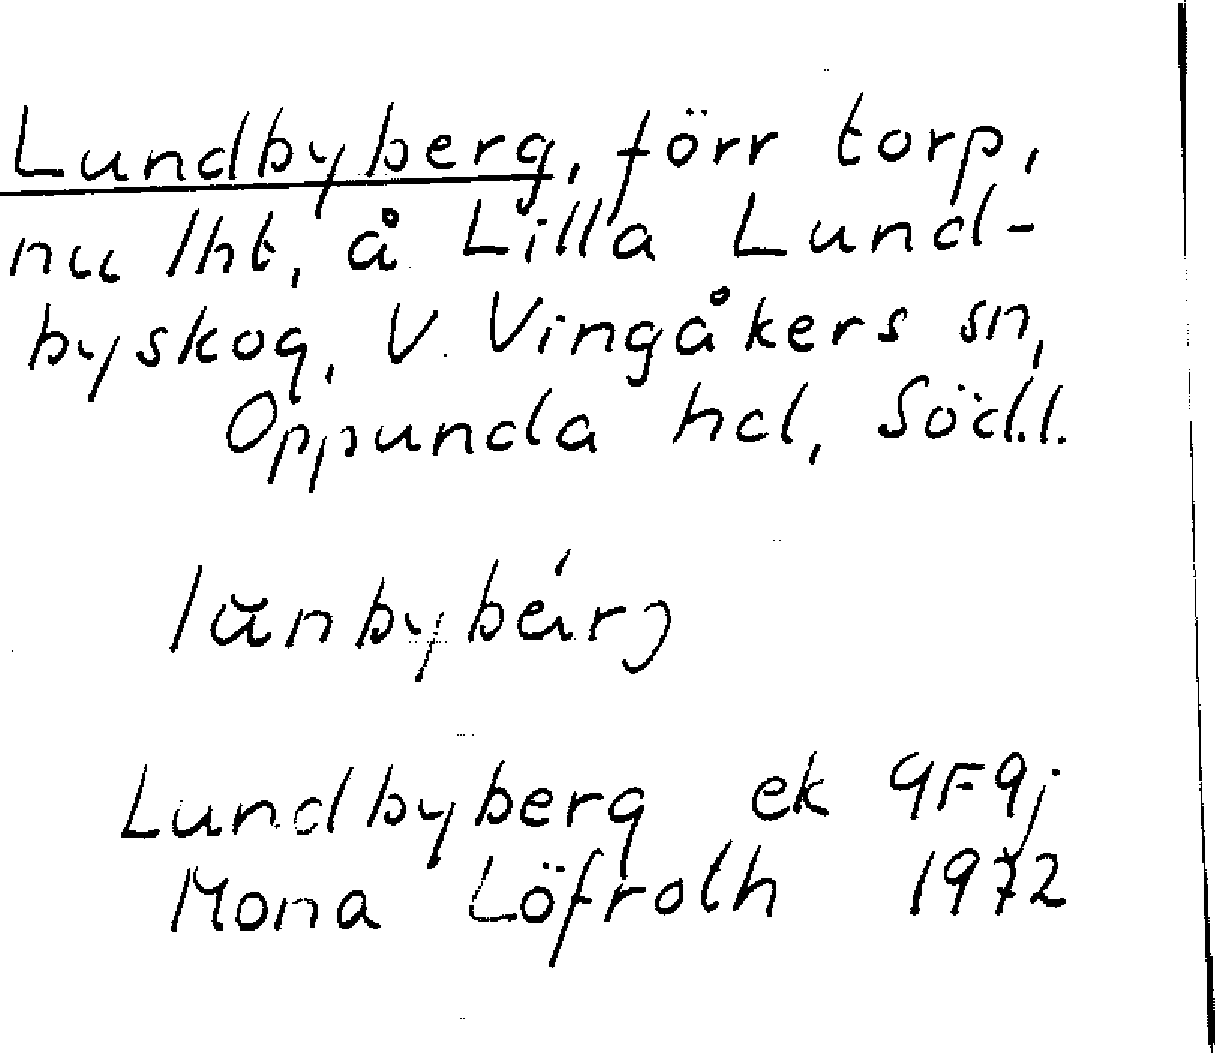 Lundbyberg, förr torp,
nu lht, å Lilla Lund-
byskog, V. Vingåkers sn,
Oppunda hd, Södl.
Lundbyberg ek 9F9j
Mona Löfroth 1972